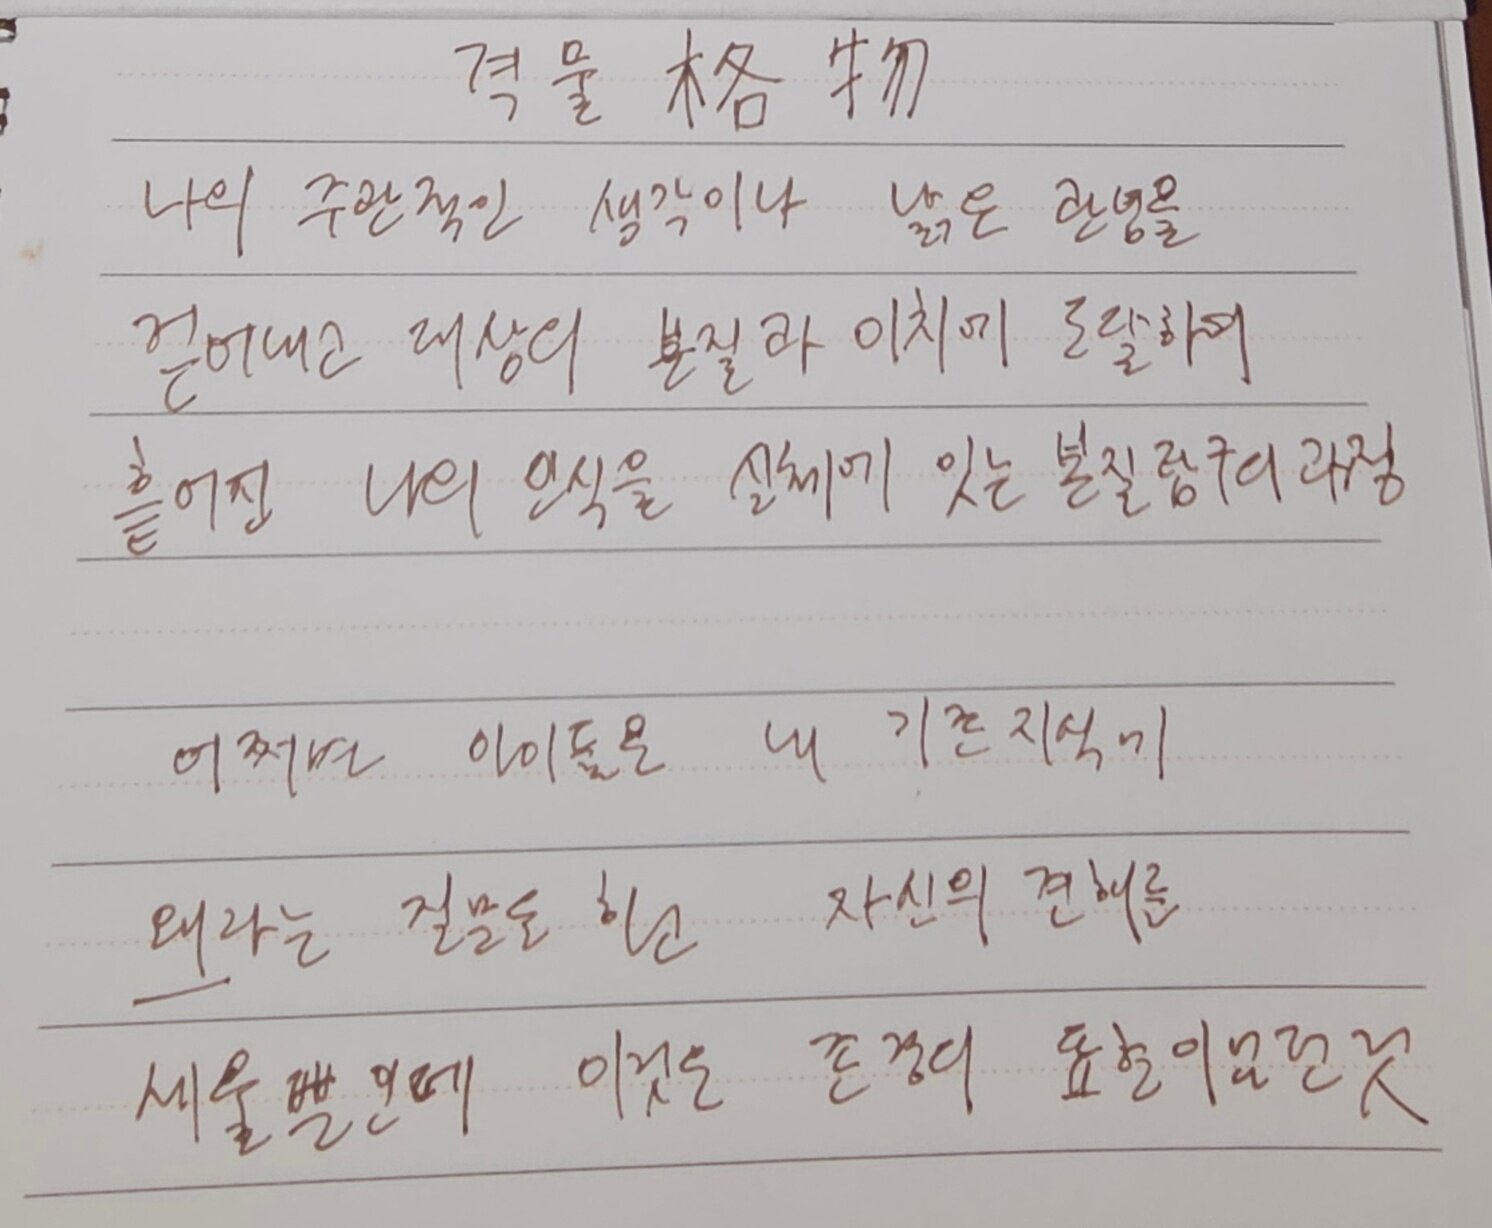 격물 格物
나의 주관적인 생각이나 낡은 관념을
걷어내고 대상의 본질과 이치에 도달하여
흩어진 나의 인식을 실체에 잇는 본질탐구의 과정
어쩌면 아이들은 내 기존지식에
왜라는 질문도 하고 자신의 견해를
세울뿐인데 이것은 존경의 표현이